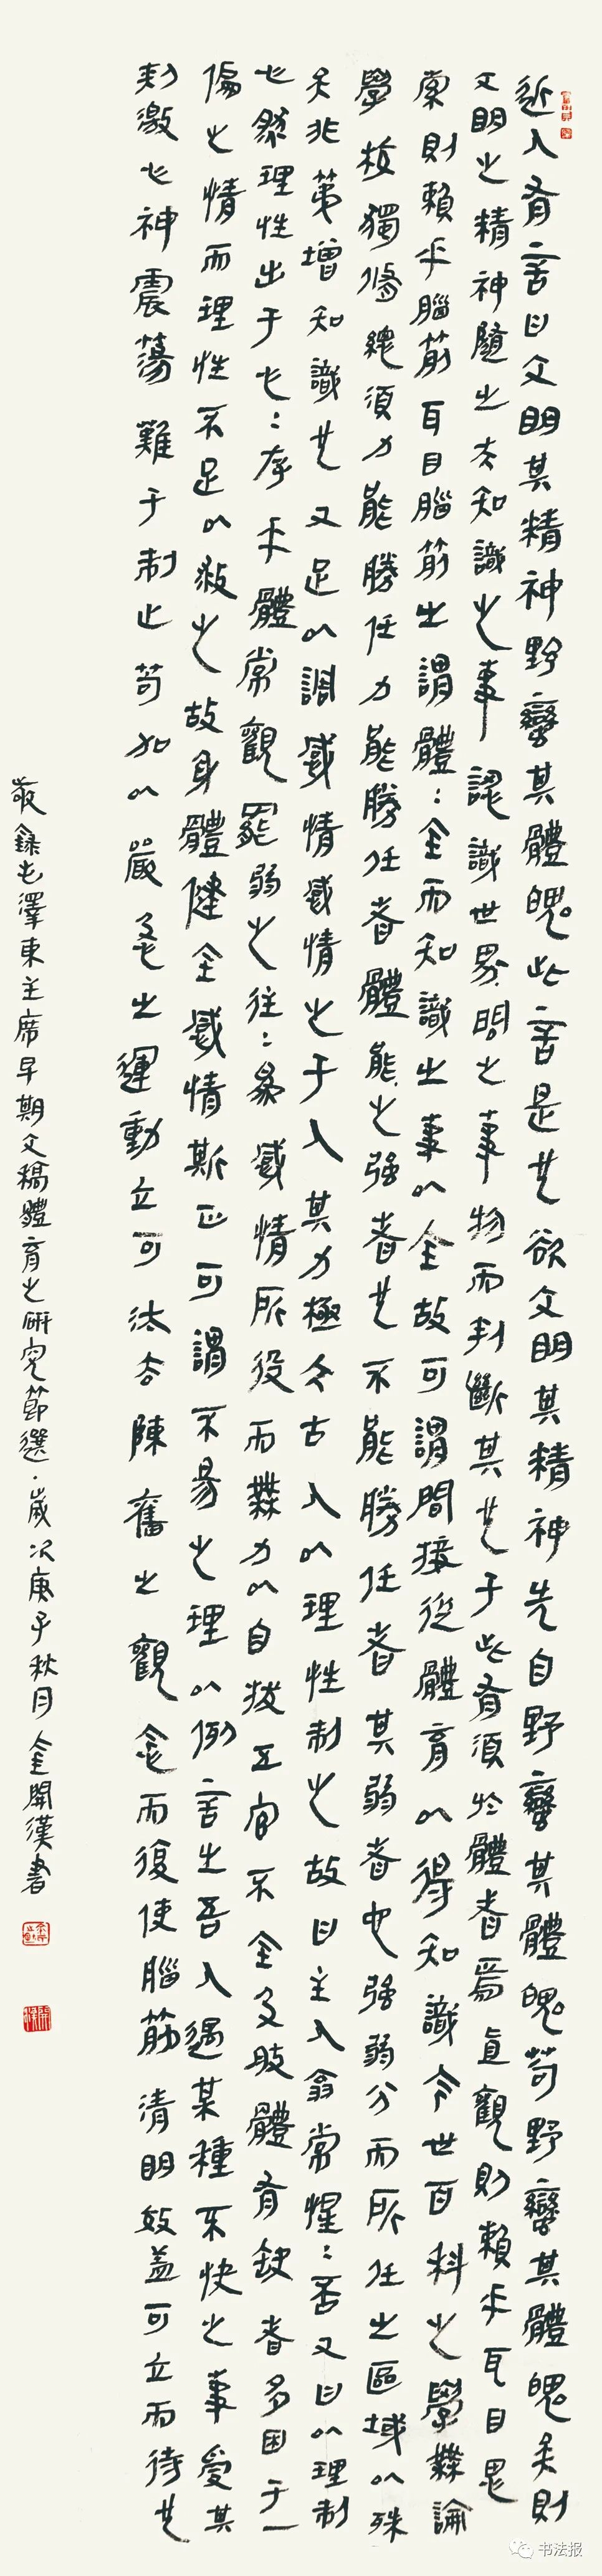 近人有言曰文明其精神野蠻其體魄此言是也欲文明其精神先自野蠻其體魄苟野蠻其體魄矣則
文明之精神隨之夫知識之事認識世界間之事物而判斷其也于此有須於體者焉直觀則賴乎耳目思
索則賴乎腦筋耳目腦筋之謂體：全而知識之事以全故可謂間接從體育以得知識今世百科之學無論
學校獨修總須力能勝任力能勝任者體能之強者也不能勝任者其弱者也強弱分而所任之區域以殊
矣非第增知識也又足以調感情感情之于人其力極今古人以理性制之故曰主人翁常惺：否又曰以理制
心然理性出于心：存乎體常觀罷弱之往：為感情所役而無力以自拔五官不全及肢體有缺者多困于一
偏之情而理性不足以救之故身體健全感情斯正可謂不易之理以例言之吾人遇某種不快之事受其
刺激心神震蕩難于制止苟加以嚴急之運動立可汰去陳舊之觀念而復使腦筋清明效蓋可立而待也
敬錄毛澤東主席早期文稿體育之研究節選·歲次庚子秋月金開漢書
书法报